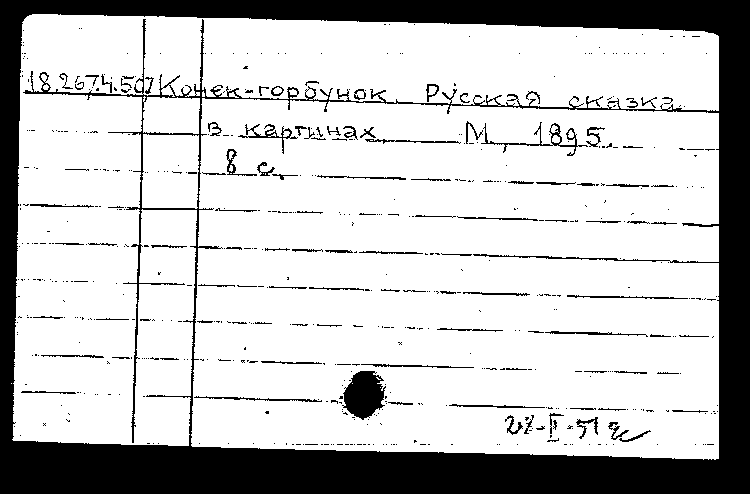 18.267.4.507 Конек-горбунок. Русская сказка
в картинах. М., 1895.
8 с.
-II-51